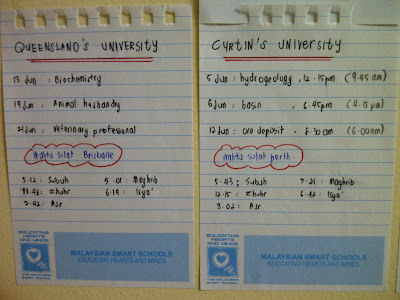 QUEENSLAND'S UNIVERSITY
13 Jun : Biochemistry
19 Jun : Animal husbandry
21 Jun : Veterinary professional
Waktu solat Brisbane
5.12 : Subuh 5.01 : Maghrib
11.48 : Zhuhr 6.19 : Isya'
2.42 : Asr
EDUCATING
HEARTS
AND MINDS
MALAYSIAN SMART SCHOOLS
EDUCATING HEARTS AND MINDS
CURTIN'S UNIVERSITY
5 Jun : hydrogeology , 12.15pm (9.45 am)
6 Jun : basin , 6.45pm (4.15 pm)
12 Jun : ore deposit , 8.30 am (6.00 am)
waktu solat perth.
5.43 : Subuh 5.21 : Maghrib
12.15 : Zhuhr 6.42 : Isya'
3.02 : Asr
EDUCATING
HEARTS
AND MINDS
MALAYSIAN SMART SCHOOLS
EDUCATING HEARTS AND MINDS